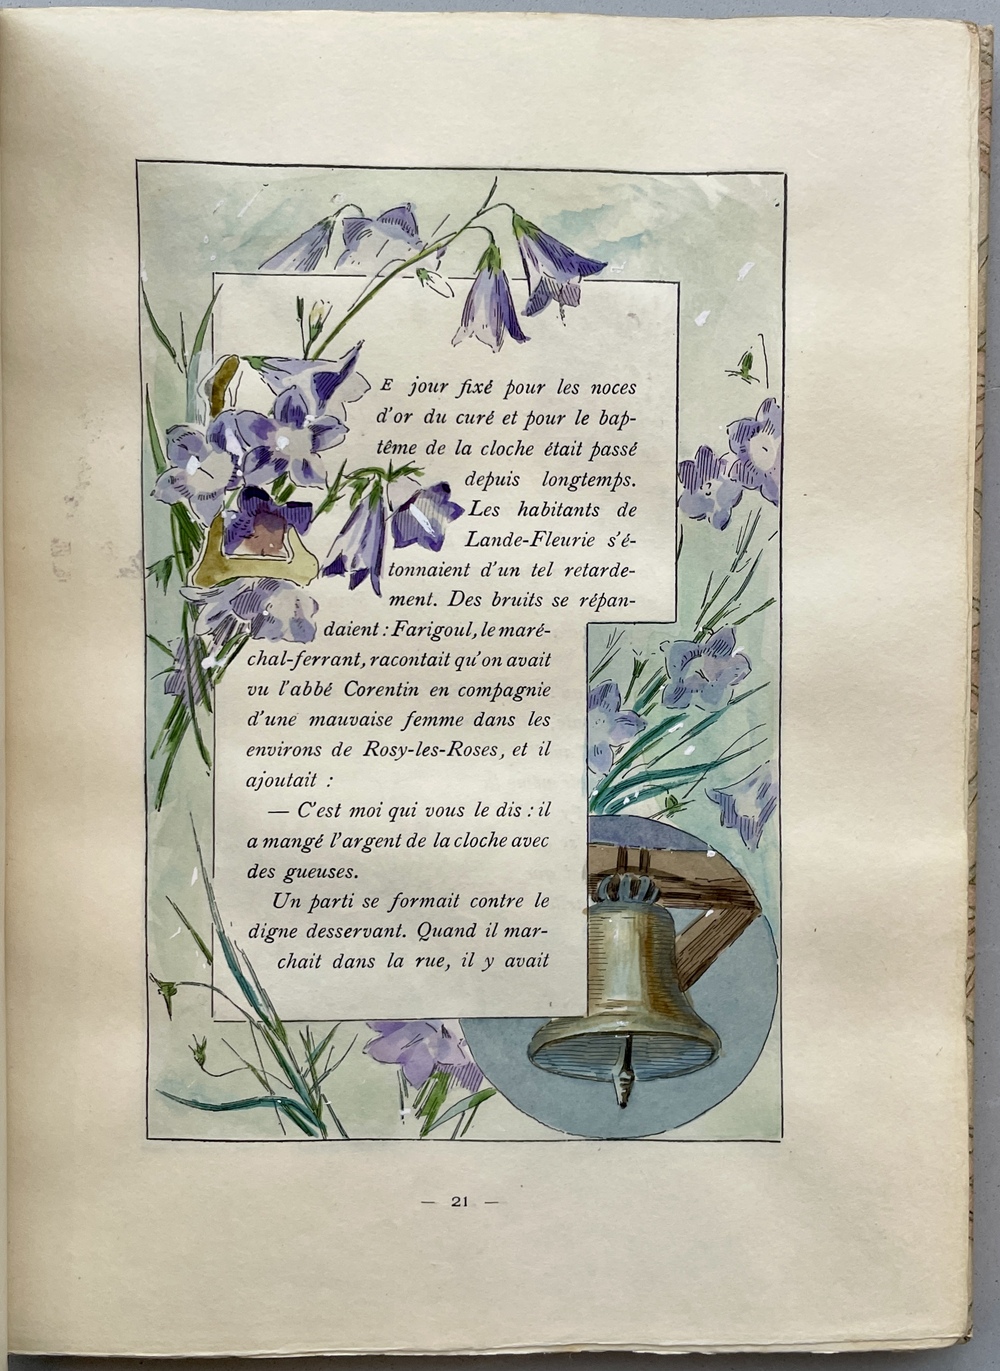 LE jour fixé pour les noces
d'or du curé et pour le bap-
tême de la cloche était passé
depuis longtemps.
Les habitants de
Lande-Fleurie s'é-
tonnaient d'un tel retarde-
ment. Des bruits se répan-
daient : Farigoul, le maré-
chal-ferrant, racontait qu'on avait
vu l'abbé Corentin en compagnie
d'une mauvaise femme dans les
environs de Rosy-les-Roses, et il
ajoutait :
— C'est moi qui vous le dis : il
a mangé l'argent de la cloche avec
des gueuses.
Un parti se formait contre le
digne desservant. Quand il mar-
chait dans la rue, il y avait
— 21 —